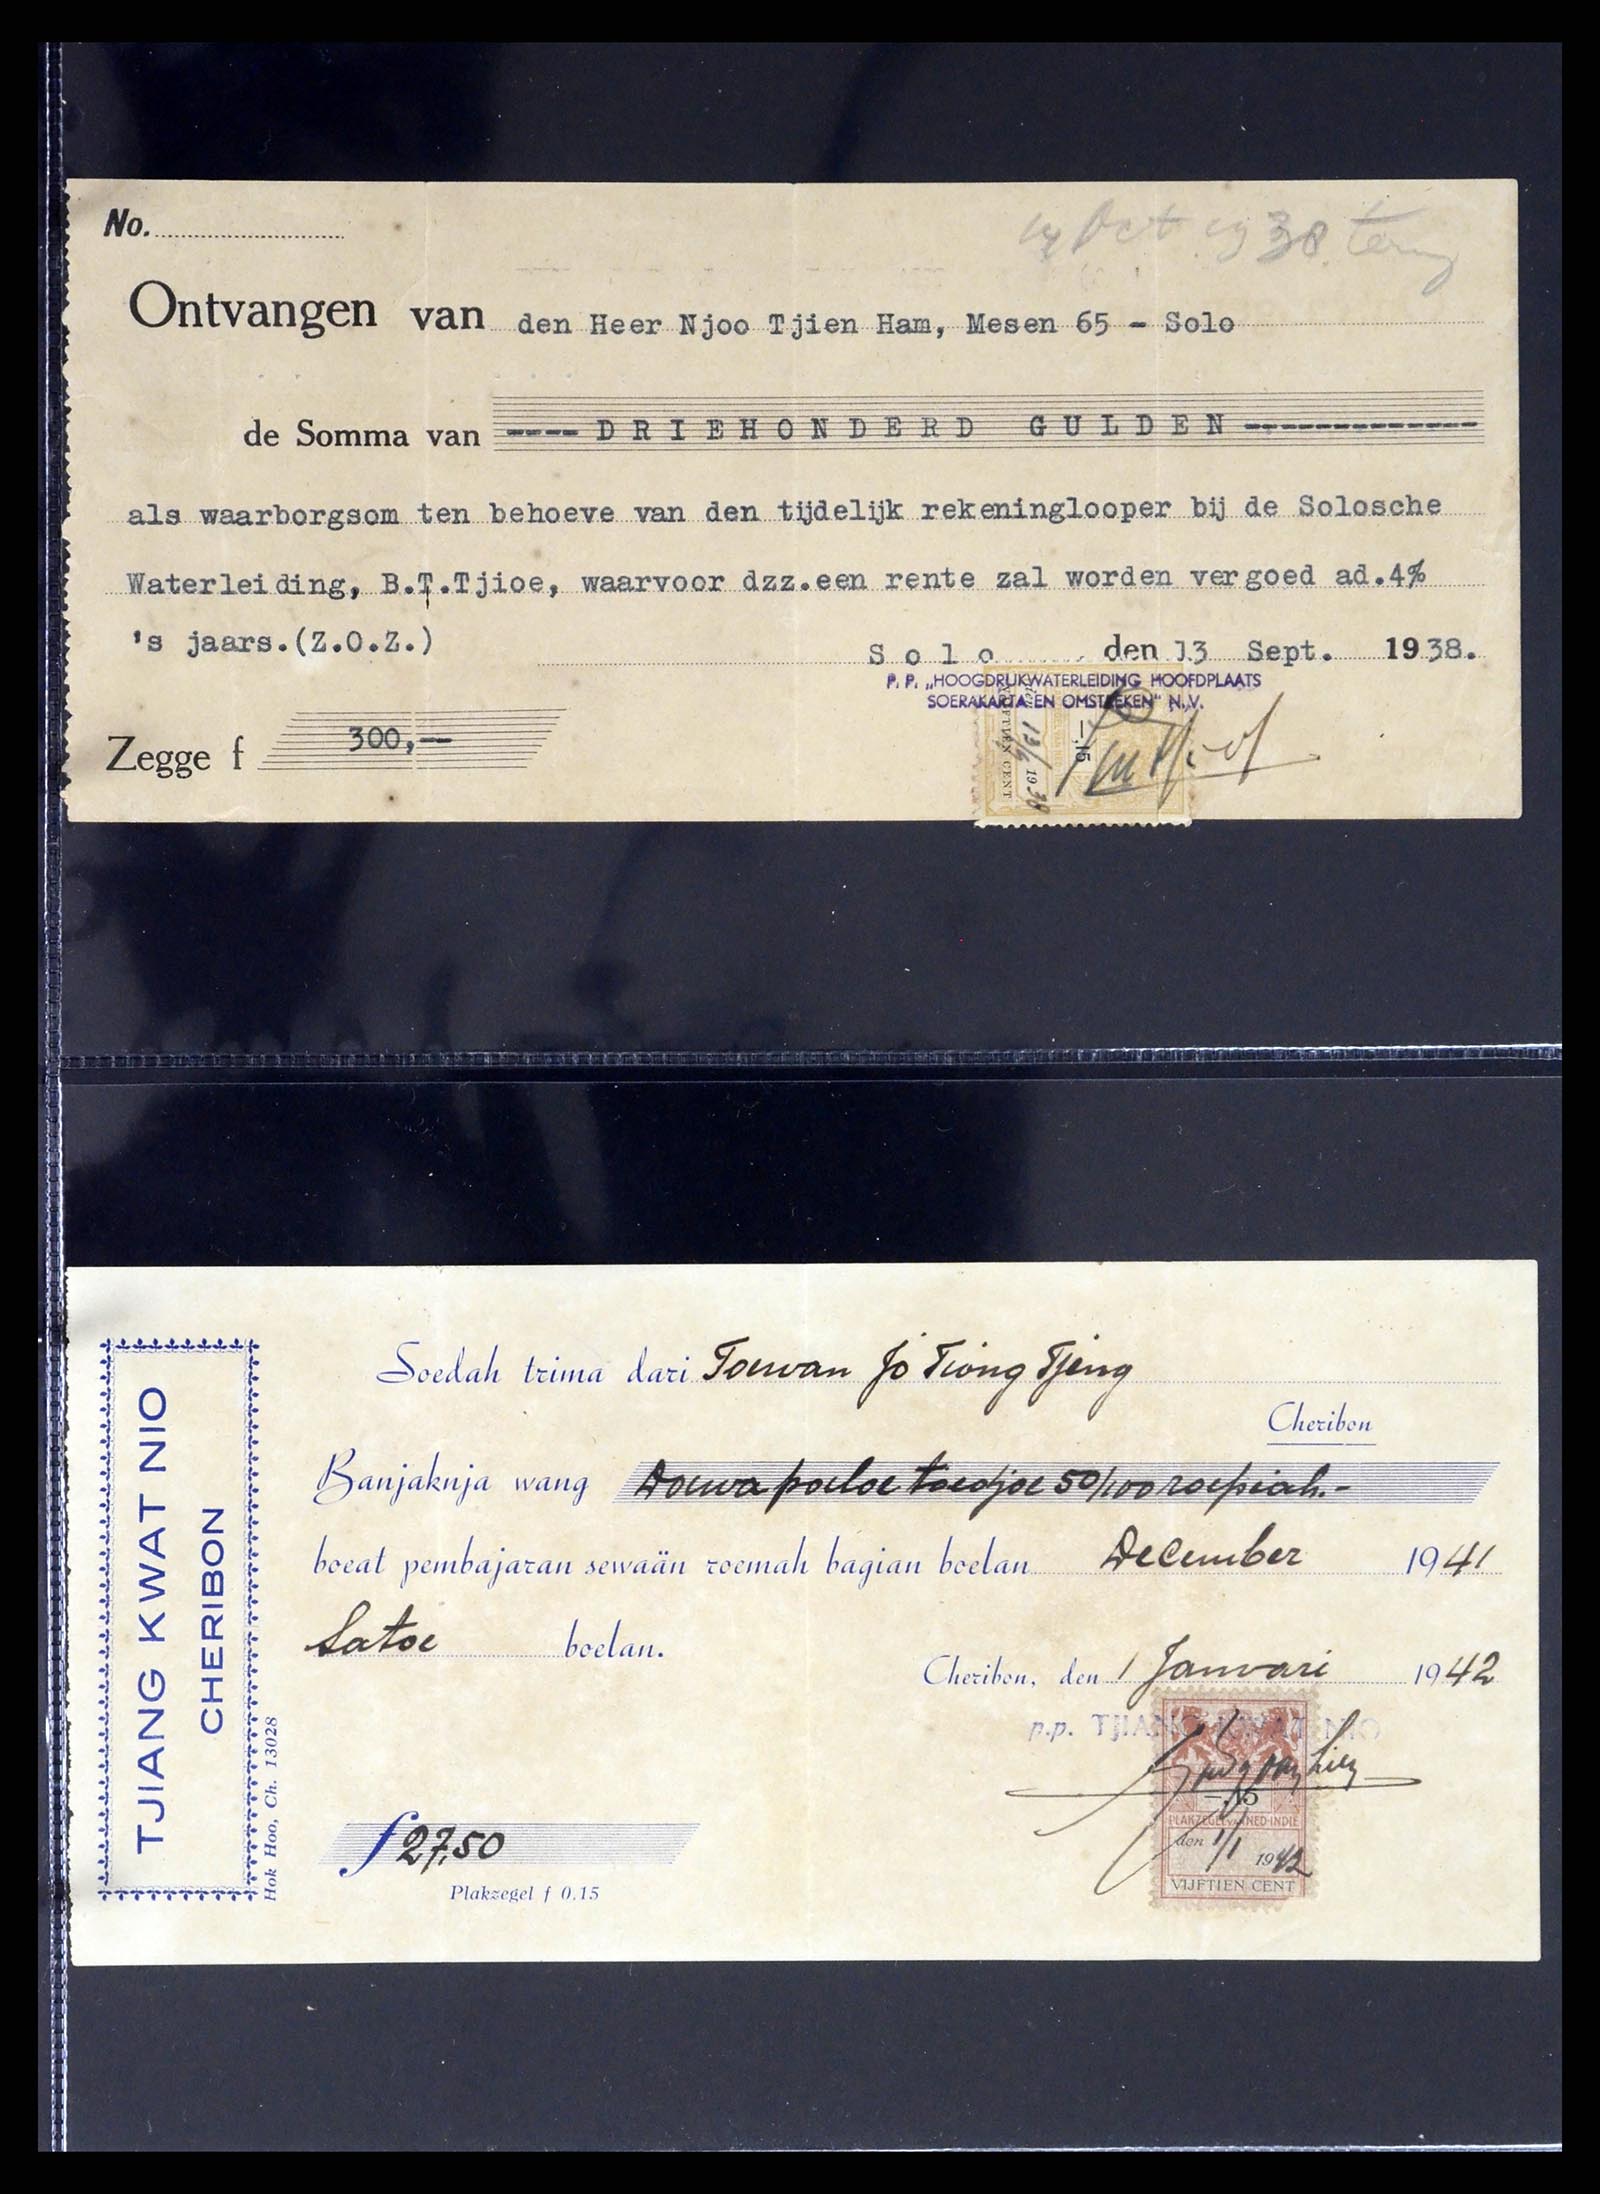 No.
Oct 1938 terug
Ontvangen van den Heer Njoo Tjien Ham, Mesen 65 - Solo
de Somma van ---- DRIEHONDERD GULDEN -------------
als waarborgsom ten behoeve van den tijdelijk rekeninglooper bij de Solosche
Waterleiding, B.T.Tjioe, waarvoor dzz.een rente zal worden vergoed ad.4%
's jaars.(Z.O.Z.)
Solo, den 13 Sept. 1938.
P.P. „HOOGDRUKWATERLEIDING HOOFDPLAATS
SOERAKARTA EN OMSTREKEN" N.V.
Zegge f 300,--
-.15
VIJFTIEN CENT
13/9 1938
TJIANG KWAT NIO
CHERIBON
Hok Hoo, Ch. 13028
Soedah trima dari Toewan Jo Tiong Tjeng
Cheribon
Banjaknja wang Doewa poeloe toedjoe 50/100 roepiah.-
boeat pembajaran sewaän roemah bagian boelan December 1941
Satoe boelan.
Cheribon, den 1 Januari 1942
p.p. TJIANG KWAT NIO
-.15
PLAKZEGEL VAN NED-INDIE
den 1/1
1942
VIJFTIEN CENT
f 27,50
Plakzegel f 0.15